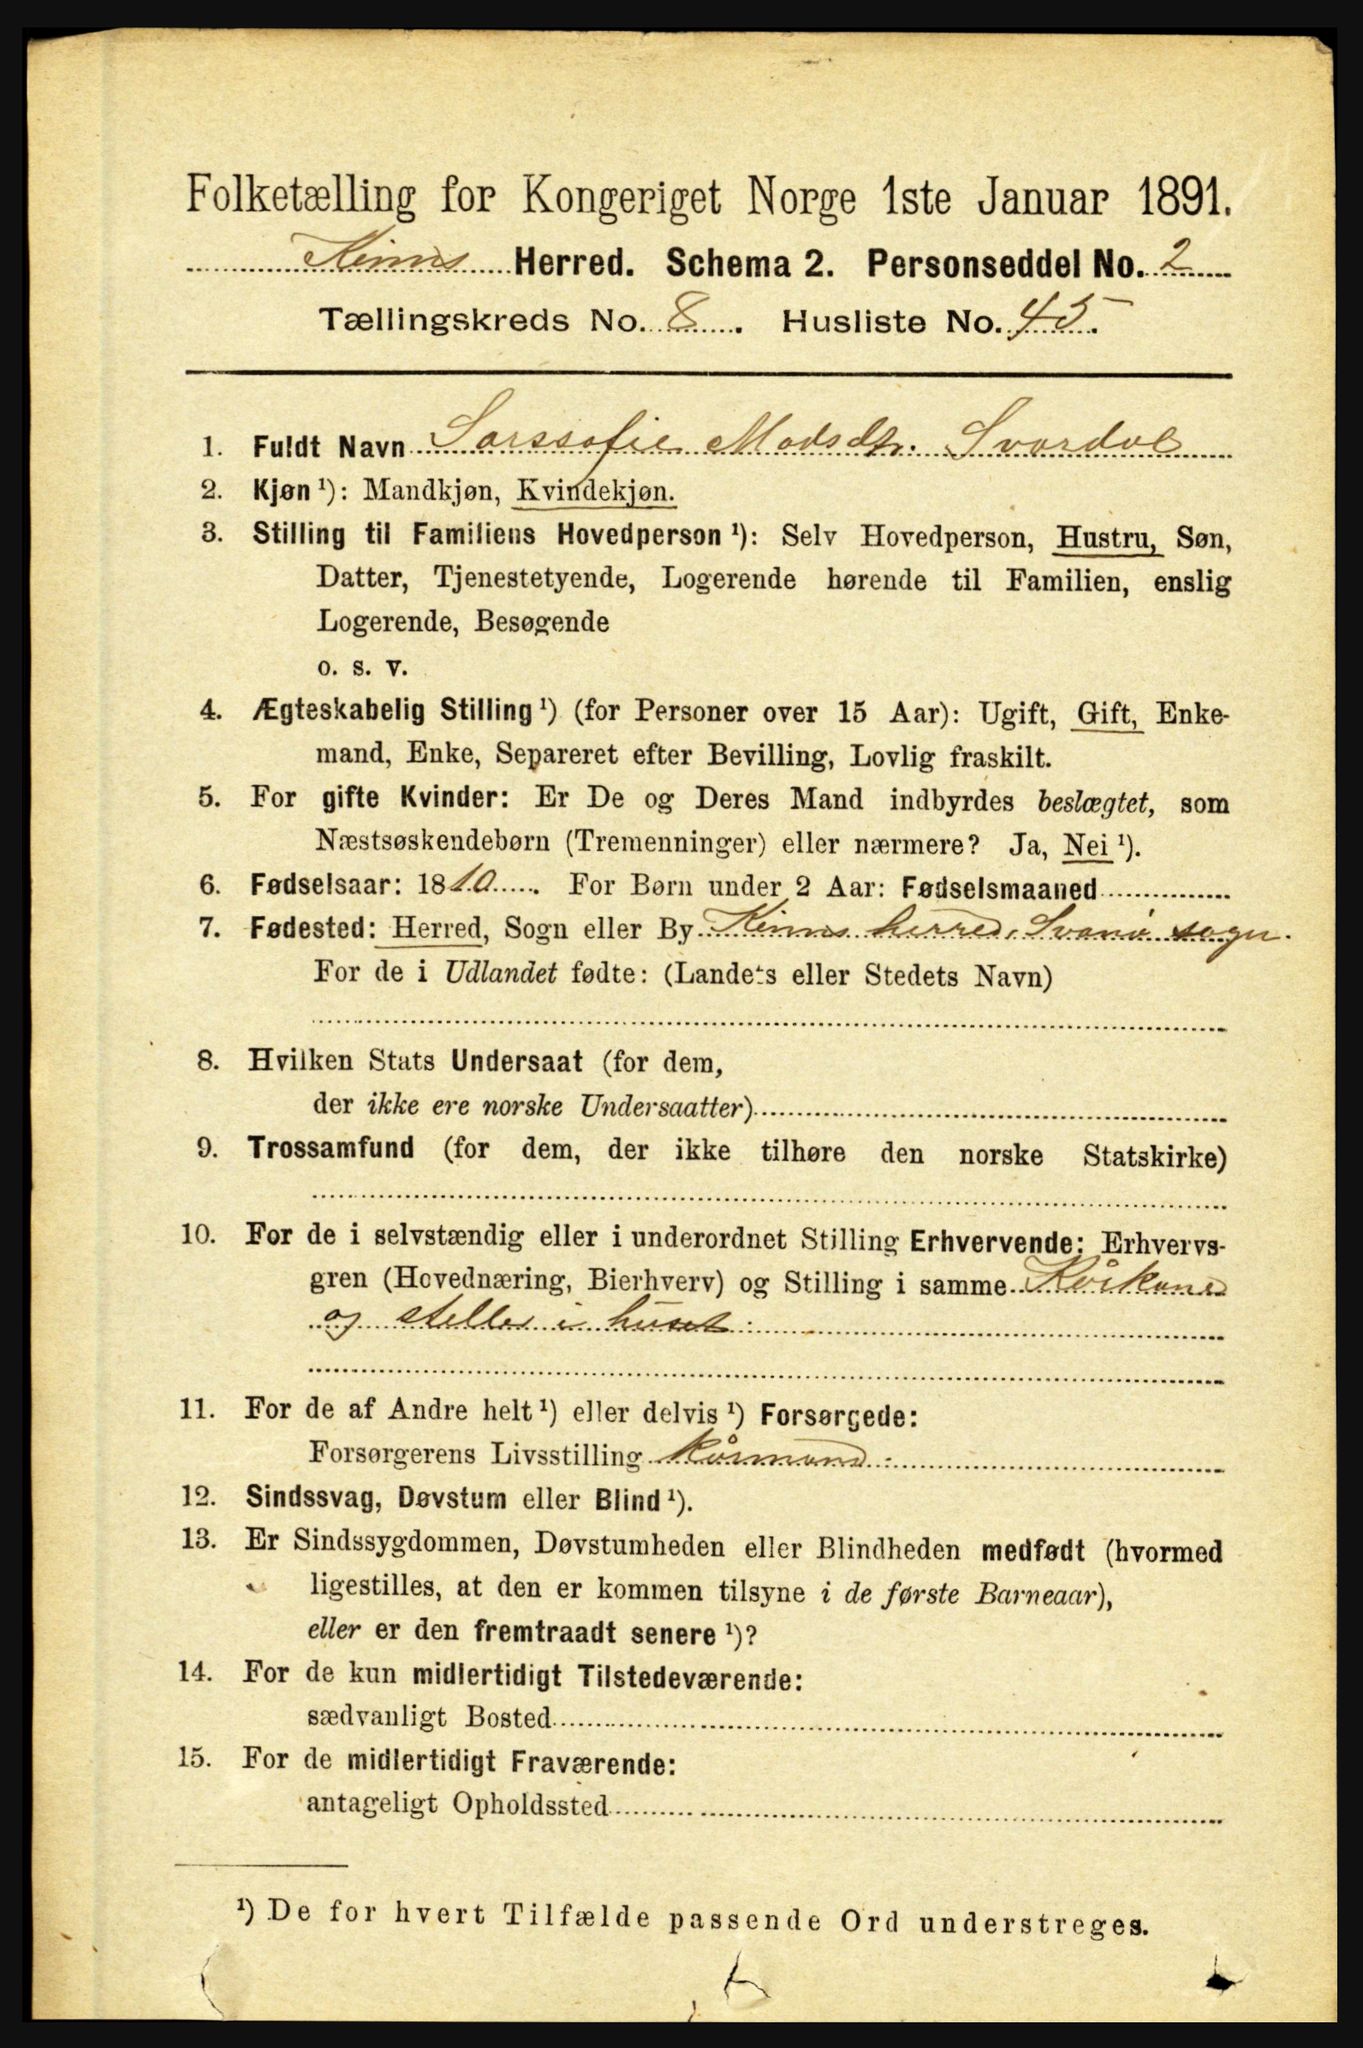 Folketælling for Kongeriget Norge 1ste Januar 1891.
Kinns Herred. Schema 2. Personseddel No. 2
Tællingskreds No. 8. Husliste No. 45.
1. Fuldt Navn Sarssofie Madsdtr. Svardal
2. Kjøn ¹): Mandkjøn, Kvindekjøn.
3. Stilling til Familiens Hovedperson ¹): Selv Hovedperson, Hustru, Søn,
Datter, Tjenestetyende, Logerende hørende til Familien, enslig
Logerende, Besøgende
o. s. v.
4. Ægteskabelig Stilling ¹) (for Personer over 15 Aar): Ugift, Gift, Enke-
mand, Enke, Separeret efter Bevilling, Lovlig fraskilt.
5. For gifte Kvinder: Er De og Deres Mand indbyrdes beslægtet, som
Næstsøskendebørn (Tremenninger) eller nærmere? Ja, Nei ¹).
6. Fødselsaar: 1810. For Børn under 2 Aar: Fødselsmaaned
7. Fødested: Herred, Sogn eller By Kinns herred, Svanø sogn.
For de i Udlandet fødte: (Landets eller Stedets Navn)
8. Hvilken Stats Undersaat (for dem,
der ikke ere norske Undersaatter)
9. Trossamfund (for dem, der ikke tilhøre den norske Statskirke)
10. For de i selvstændig eller i underordnet Stilling Erhvervende: Erhvervs-
gren (Hovednæring, Bierhverv) og Stilling i samme Kårkone
og steller i huset.
11. For de af Andre helt ¹) eller delvis ¹) Forsørgede:
Forsørgerens Livsstilling Kårmand.
12. Sindssvag, Døvstum eller Blind ¹).
13. Er Sindssygdommen, Døvstumheden eller Blindheden medfødt (hvormed
ligestilles, at den er kommen tilsyne i de første Barneaar),
eller er den fremtraadt senere ¹)?
14. For de kun midlertidigt Tilstedeværende:
sædvanligt Bosted
15. For de midlertidigt Fraværende:
antageligt Opholdssted
¹) De for hvert Tilfælde passende Ord understreges.